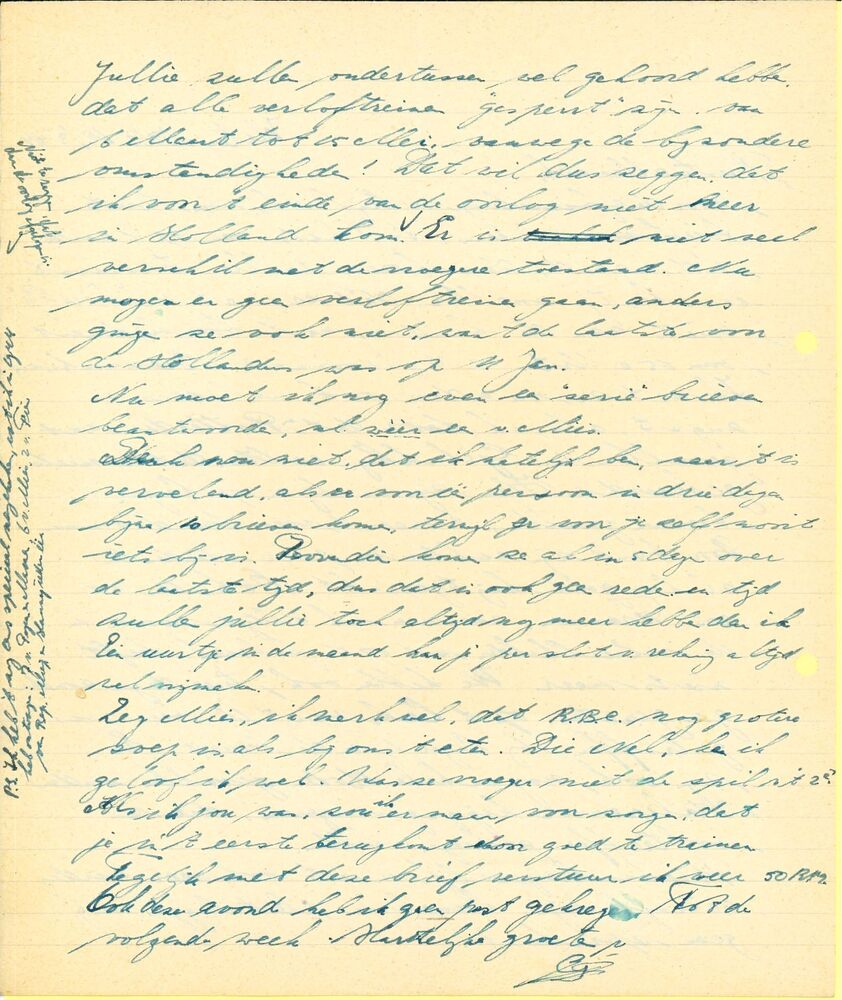 Jullie zullen ondertussen wel gehoord hebben,
dat alle verloftreinen "gesperrt" zijn van
6 Maart tot 15 Mei, vanwege de byzondere
omstandigheden! Dat wil dus zeggen, dat
ik voor 't einde van de oorlog niet meer
in Holland kom. Er is niet veel
verschil met de vroegere toestand. Nu
mogen er geen verloftreinen gaan, anders
gingen ze ook niet, want de laatste voor
de Hollanders was op 11 Jan.
Nu moet ik nog even een "serie" brieven
beantwoorden, nl. vier en v. Mies.
Denk nou niet, dat ik hatelijk ben, maar 't is
vervelend, als er voor één persoon in drie dagen
bijna 10 brieven komen, terwijl er voor je zelf nooit
iets bij is. Bovendien komen ze al in 5 dagen over
de laatste tijd, dus dat is ook geen reden en tijd
zullen jullie toch altijd nog meer hebben dan ik
Een uurtje in de maand kan je per slot v. rekening altijd
wel vrijmaken.
Zeg Mies, ik merk wel, dat R.B.C. nog grotere
soep is als bij ons 't eten. Die Nel, ken ik
geloof ik wel. Was ze vroeger niet de spil uit 2e?
Als ik jou was, zou ik er maar, voor zorgen, dat
je in 't eerste terugkomt door goed te trainen
Tegelijk met deze brief verstuur ik weer 50 RM.
Ook deze avond heb ik geen post gekregen. Tot de
volgende week. Hartelijke groeten
P.S. Ik heb 't bij ons speciaal nagekeken, wat ik in 1944
heb ontvangen: